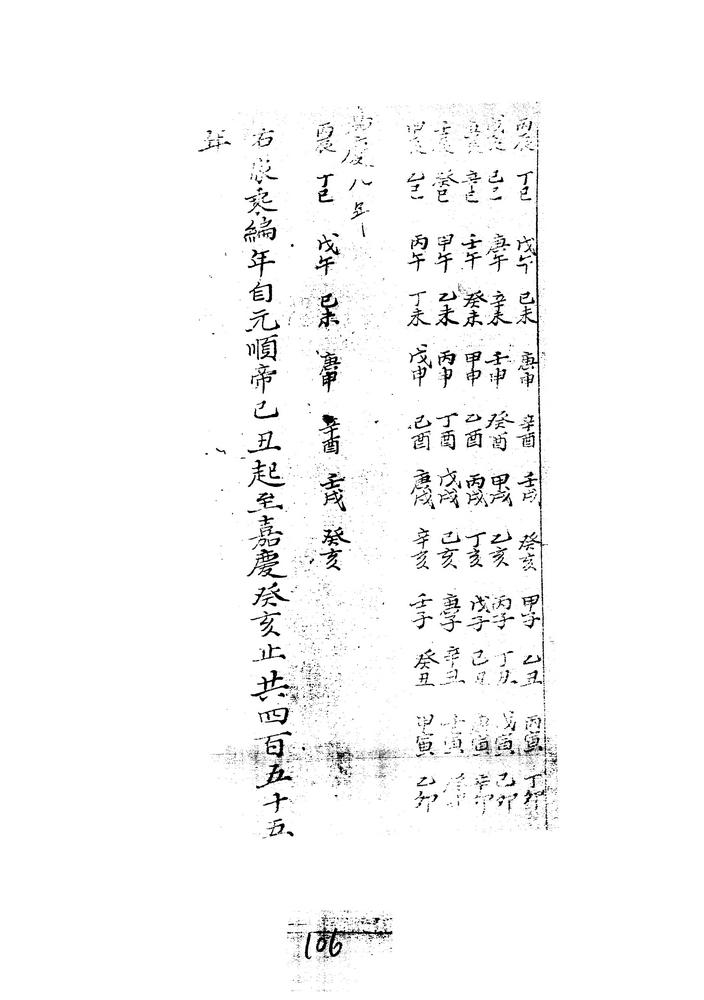 丙辰 丁巳 戊午 己未 庚申 辛酉 壬戌 癸亥 甲子 乙丑 丙寅 丁卯
戊辰 己巳 庚午 辛未 壬申 癸酉 甲戌 乙亥 丙子 丁丑 戊寅 己卯
庚辰 辛巳 壬午 癸未 甲申 乙酉 丙戌 丁亥 戊子 己丑 庚寅 辛卯
壬辰 癸巳 甲午 乙未 丙申 丁酉 戊戌 己亥 庚子 辛丑 壬寅
甲辰 乙巳 丙午 丁未 戊申 己酉 庚戌 辛亥 壬子 癸丑 甲寅 乙卯
慶八年
丙辰 丁巳 戊午 己未 庚申 辛酉 壬戌 癸亥
右 編年自元順帝己丑起至嘉慶癸亥止共四百五十五
年
106